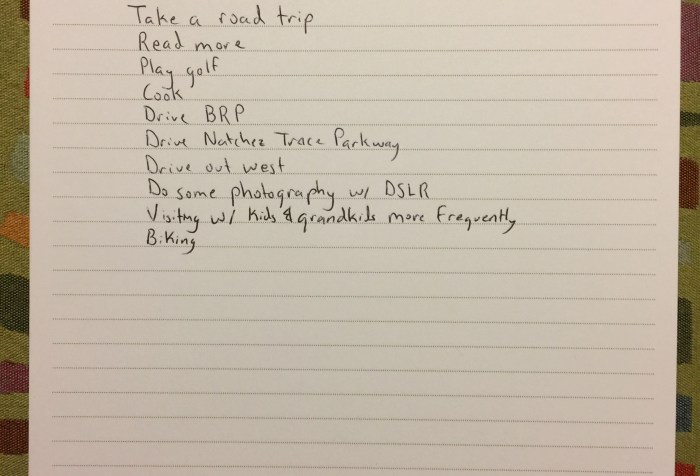 Take a road trip
Read more
Play golf
Cook
Drive BRP
Drive Natchez Trace Parkway
Drive out west
Do some photography w/ DSLR
Visitng w/ Kids & grandkids more frequently
Biking